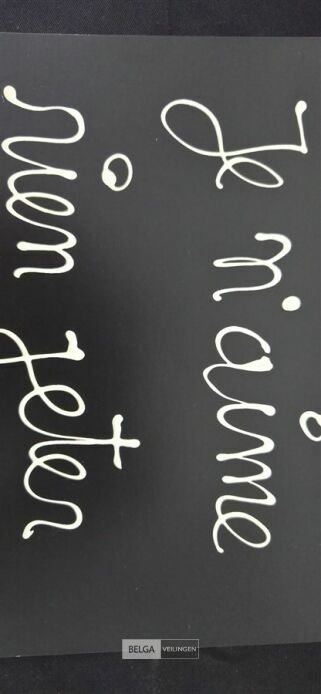 Je n'aime
rien jeter
BELGA VEILINGEN